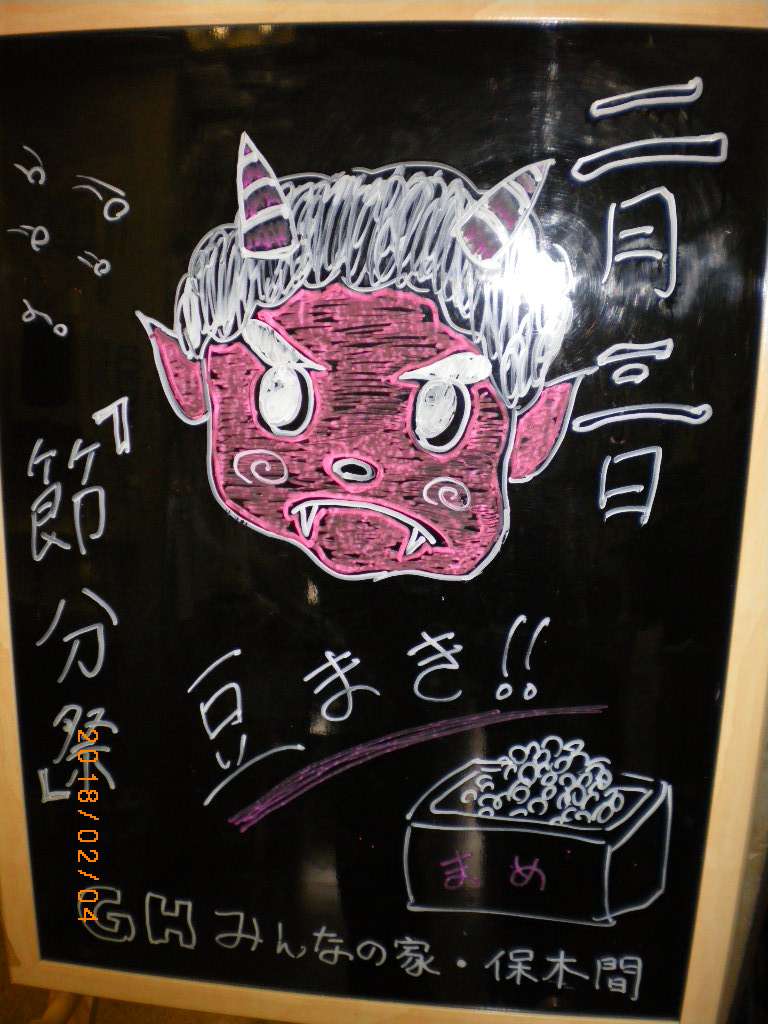 二月三日
『節分祭』
豆まき!!
まめ
GHみんなの家・保木間
2018/02/04